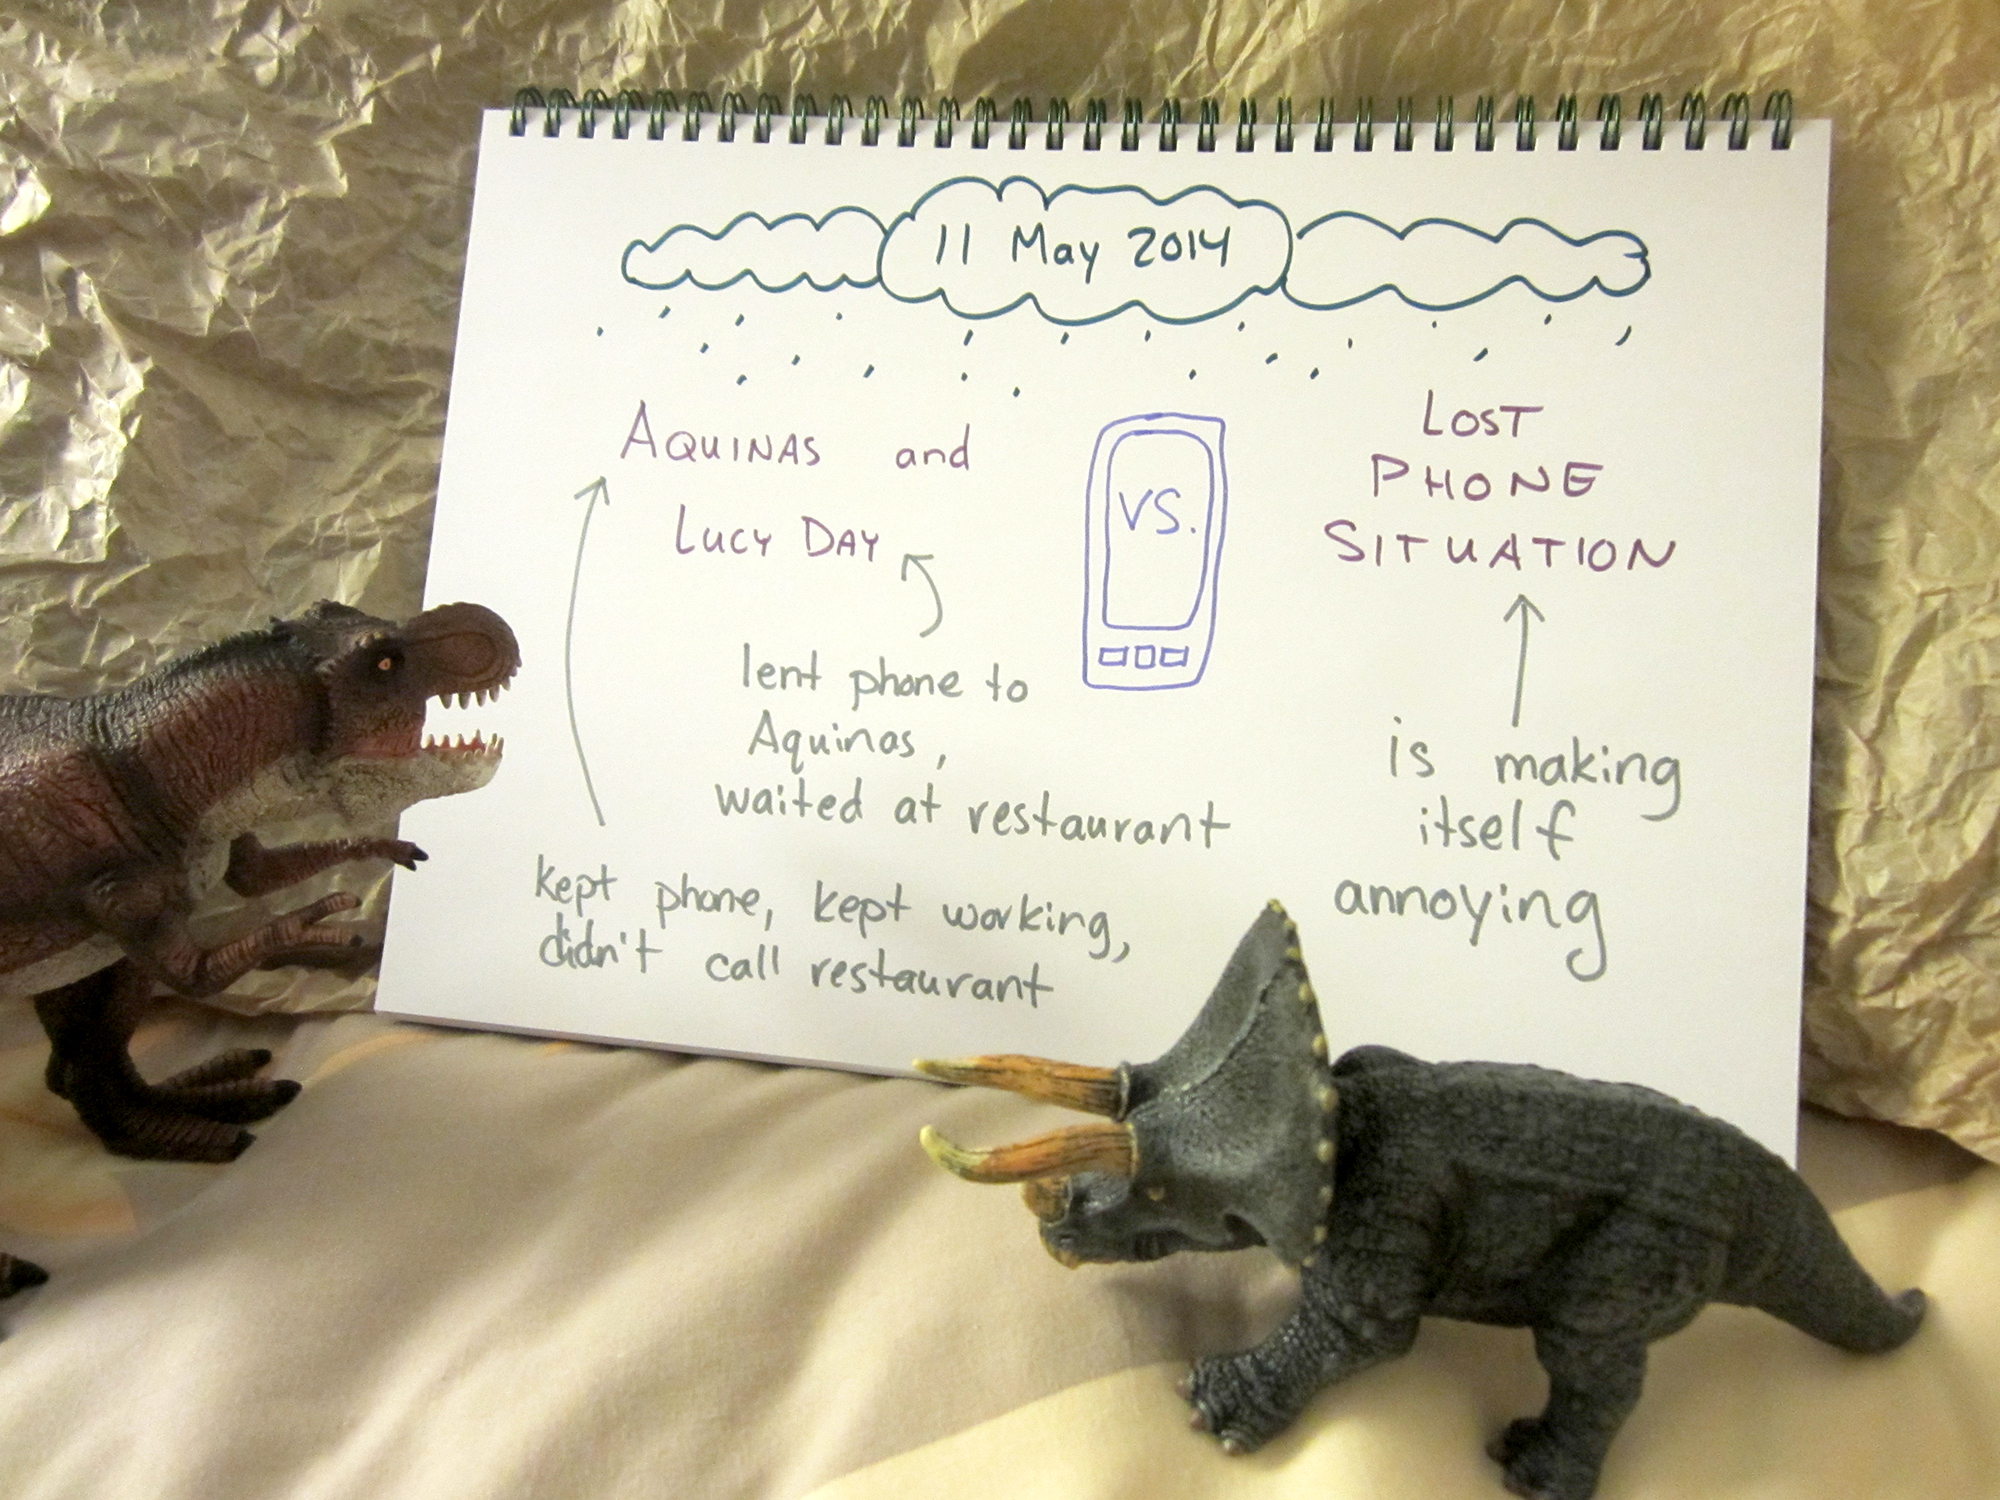 11 May 2014
AQUINAS and
LUCY DAY
VS.
LOST
PHONE
SITUATION
lent phone to
Aquinas,
waited at restaurant
kept phone, kept working,
didn't call restaurant
is making
itself
annoying